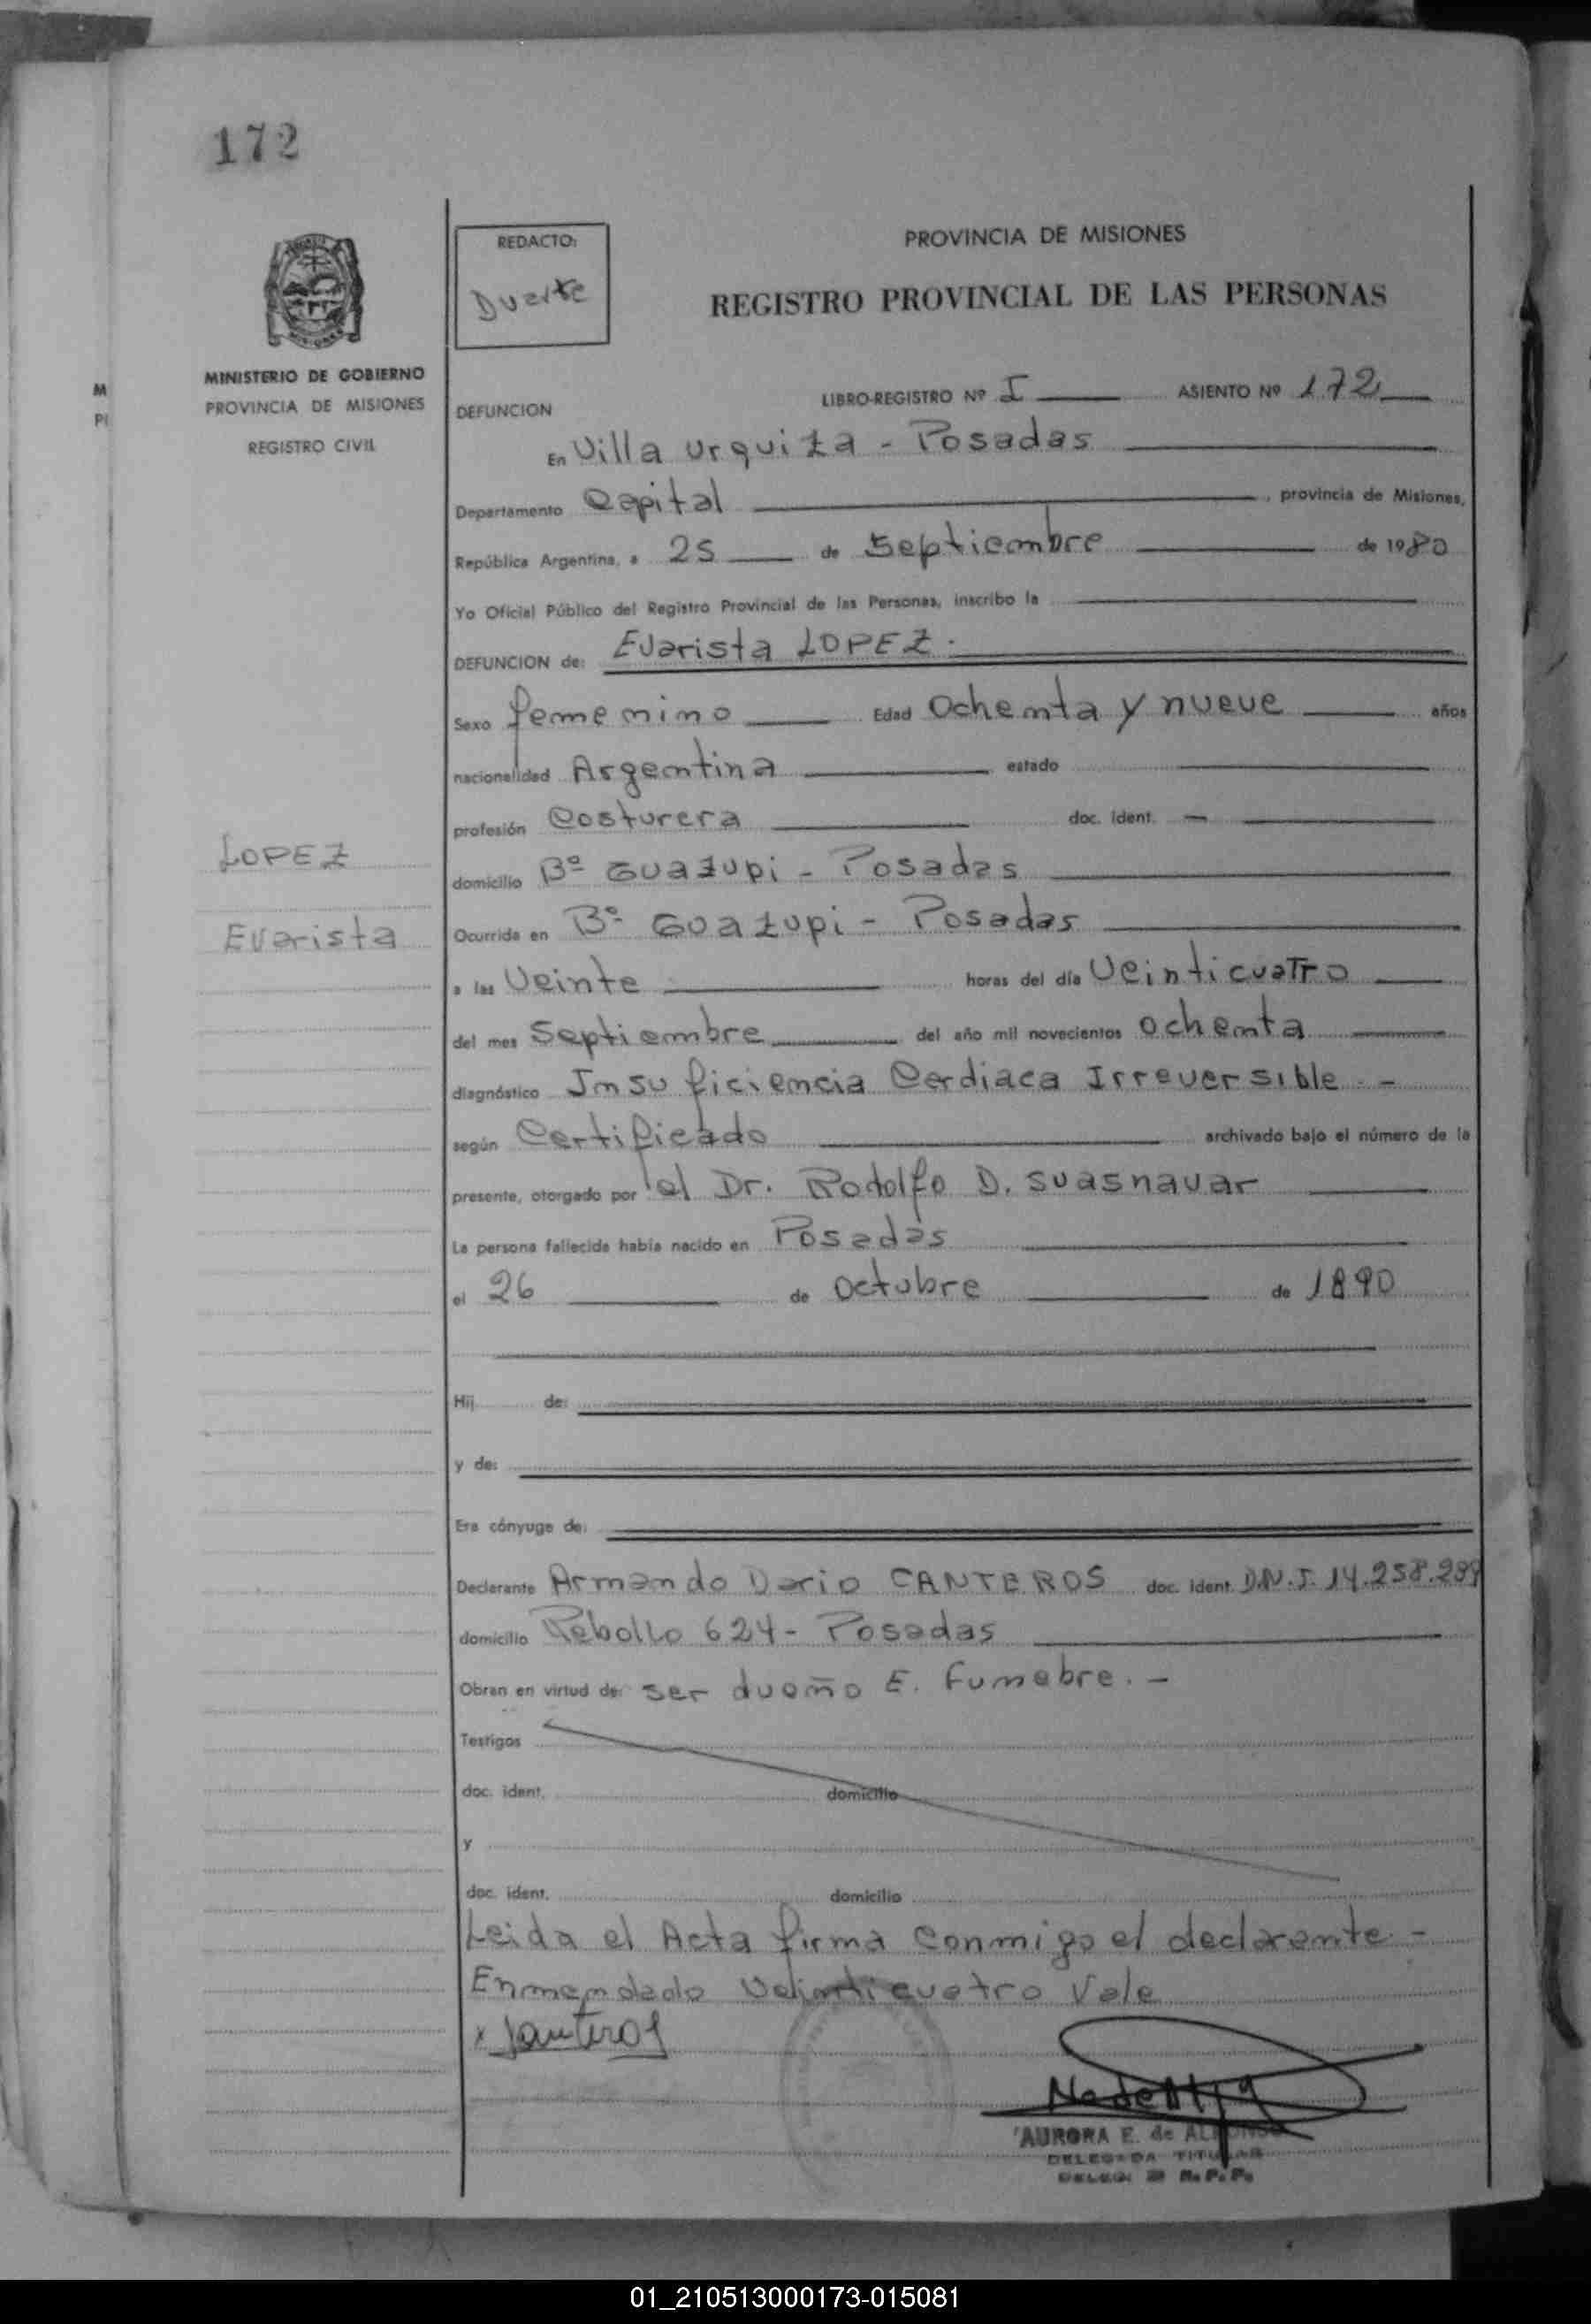 172
REDACTO:
Duarte
PROVINCIA DE MISIONES
REGISTRO PROVINCIAL DE LAS PERSONAS
MINISTERIO DE GOBIERNO
PROVINCIA DE MISIONES
REGISTRO CIVIL
M
PI
DEFUNCION LIBRO-REGISTRO Nº I ASIENTO Nº 172
En Villa Urquiza - Posadas
Departamento Capital , provincia de Misiones,
República Argentina, a 25 de Septiembre de 1980
Yo Oficial Público del Registro Provincial de las Personas, inscribo la
DEFUNCION de: Evarista LOPEZ.
Sexo femenino Edad Ochenta y nueve años
nacionalidad Argentina estado
profesión Costurera doc. ident. —
LOPEZ
Evarista
domicilio Bº Guazupi - Posadas
Ocurrida en Bº Guazupi - Posadas
a las Veinte horas del día Veinticuatro
del mes Septiembre del año mil novecientos ochenta
diagnóstico Insuficiencia Cardiaca Irreversible. -
según Certificado archivado bajo el número de la
presente, otorgado por el Dr. Rodolfo D. Suasnavar
La persona fallecida había nacido en Posadas
el 26 de Octubre de 1890
Hij de:
y de:
Era cónyuge de:
Declarante Armando Dario CANTEROS doc. ident. D.N.I. 14.258.289
domicilio Rebollo 624 - Posadas
Obran en virtud de: ser dueño E. Funebre. -
Testigos
doc. ident. domicilio
y
doc. ident. domicilio
Leida el Acta firma conmigo el declarante -
Enmendado Veinticuatro Vale
x Canteros
AURORA E. de
DELEGADA TITULAR
R.P.P.
01_210513000173-015081